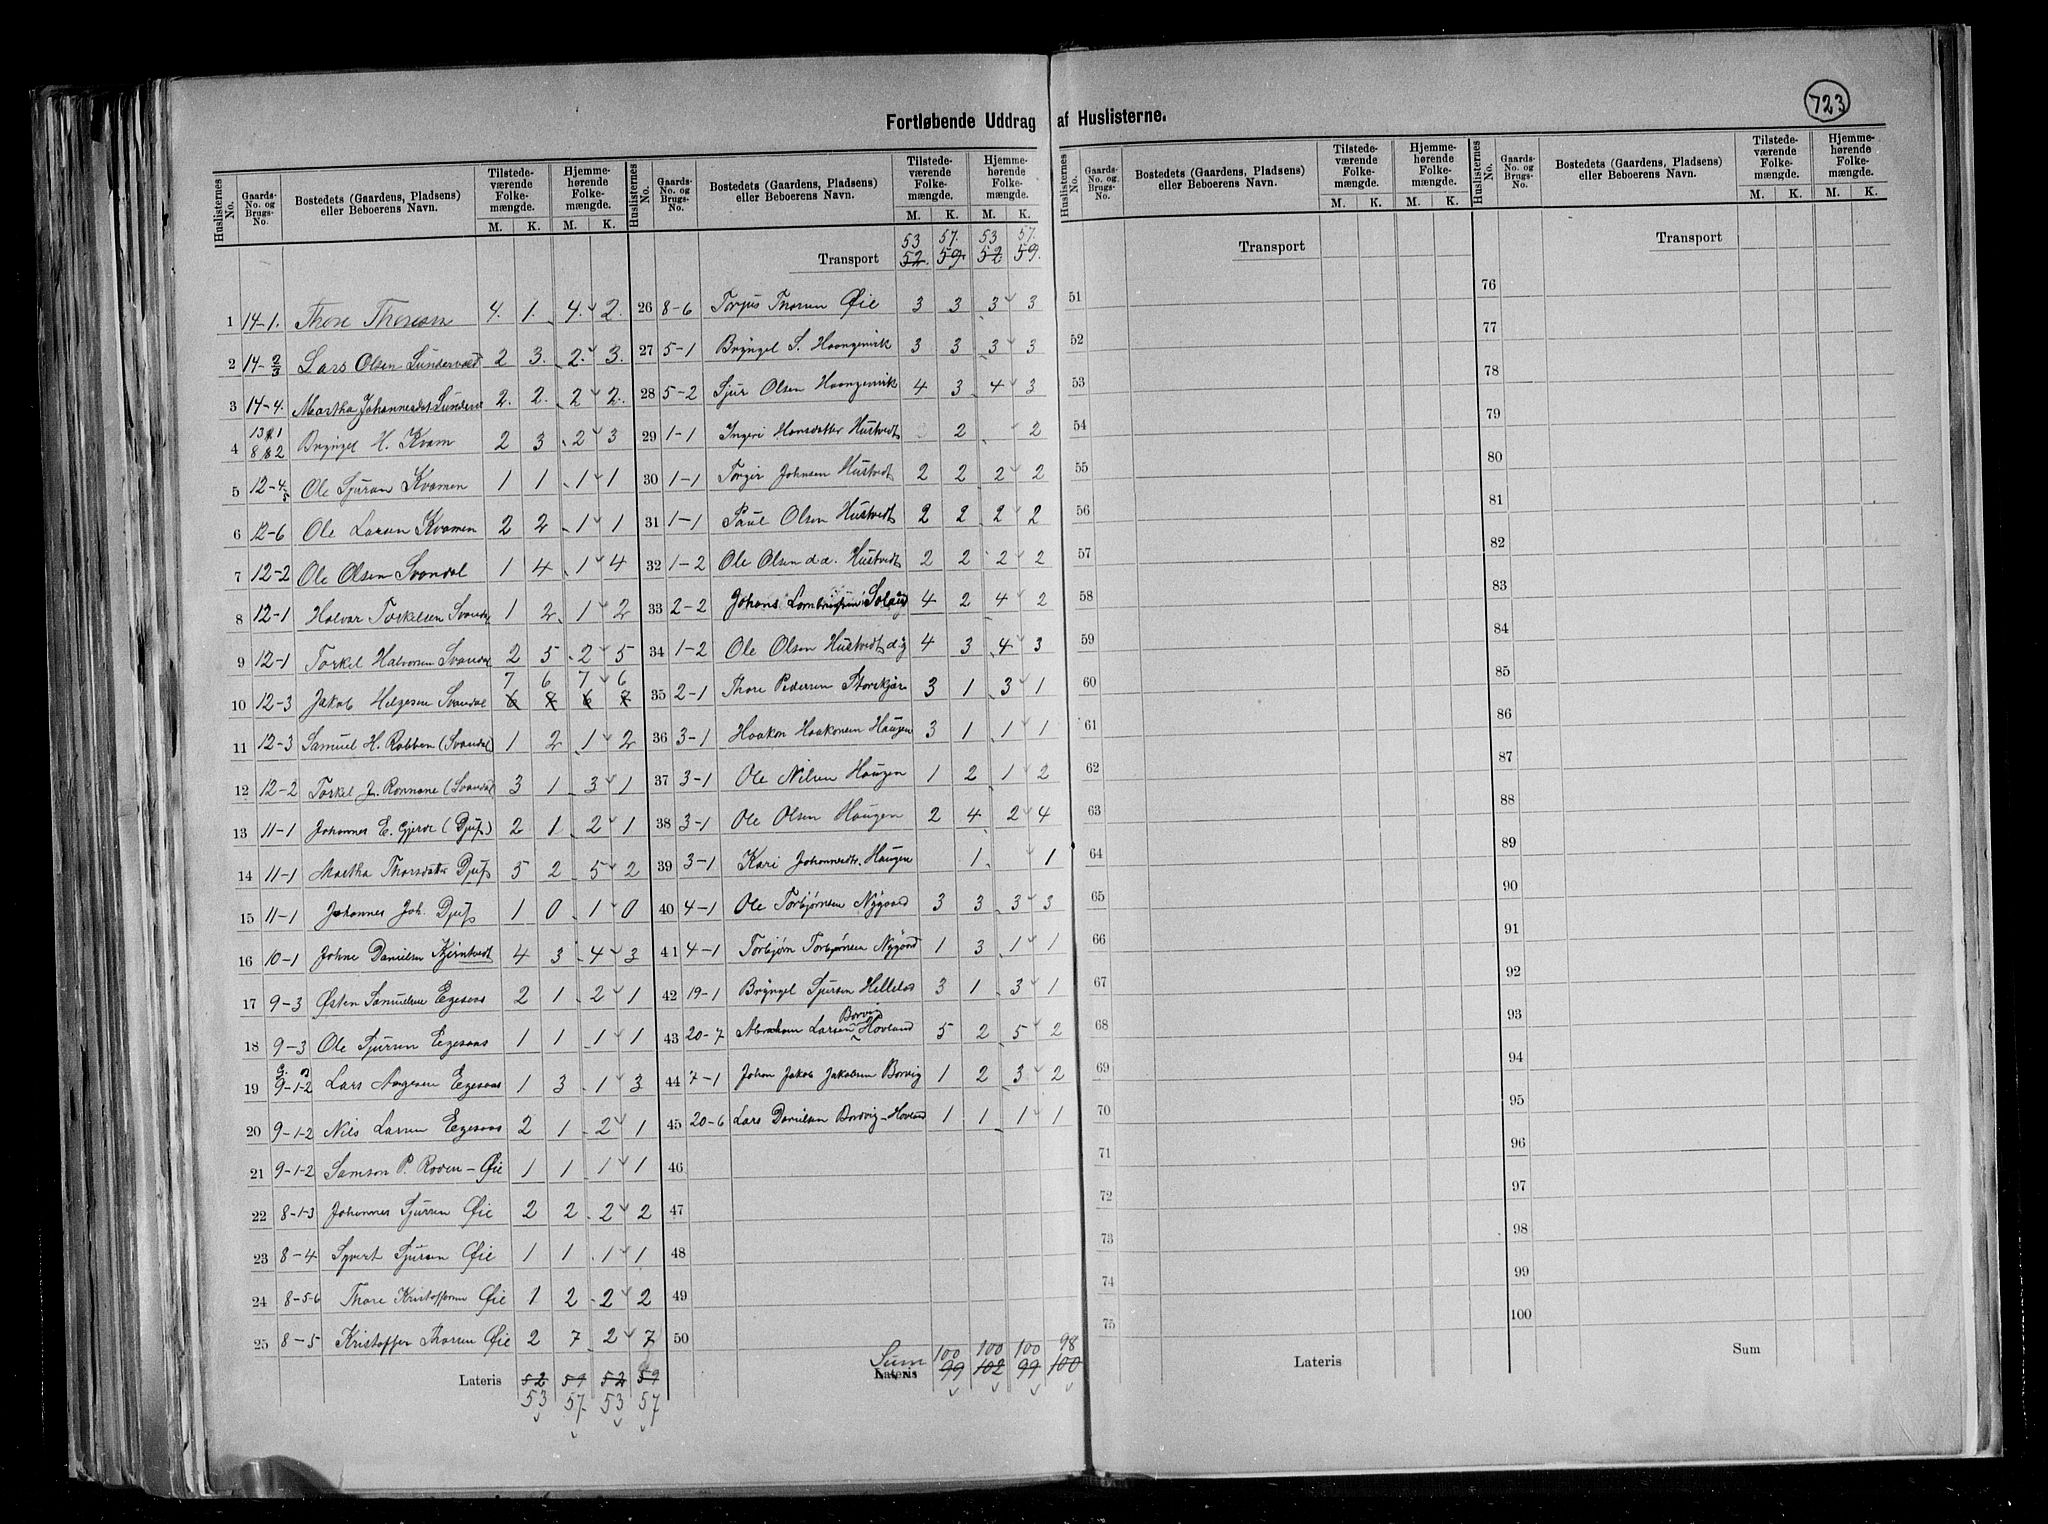 723
Fortløbende Uddrag af Huslisterne.
Huslisternes No. | Gaards-No. og Brugs-No. | Bostedets (Gaardens, Pladsens) eller Beboerens Navn. | Tilstede-værende Folke-mængde. M. K. | Hjemme-hørende Folke-mængde. M. K.
1 14-1. Thore Thorsen 4. 1. 4. 2.
2 14-2/3 Lars Olsen Sundervold 2 3. 2. 3.
3 14-4. Martha Johannesdat 2. 2. 2 2.
4 13-1 8-2 Bryngel H. Kvam 2 3 2 3
5 12-4 5 Ole Sjursen Kvamen 1 1 1 1
6 12-6 Ole Larsen Kvamen 2 2 1 1
7 12-2 Ole Olsen Svandal 1 4 1 4
8 12-1 Halvor Torkelsen Svandal 1 2 1 2
9 12-1 Torkel Halvorsen Svandal 2 5 2 5
7 6 7 6
10 12-3 Jakob Helgesen Svandal 6 7 6 7
11 12-3 Samuel H. Rabben (Svandal) 1 2 1 2
12 12-2 Torkel J. (Svandal 3 1 3 1
13 11-1 Johannes E. Gjerde (Djuf) 2 1 2 1
14 11-1 Martha Thorsdatter Djuf 5 2 5 2
15 11-1 Johannes Joh. Djuf 1 0 1 0
16 10-1 Johne Danielsen 4 3 4 3
17 9-3 Østen Samuelsen Egesaas 2 1 2 1
18 9-3 Ole Sjursen Egesaas 1 1 1 1
19 9-1-2 Lars Egesaas 1 3 1 3
20 9-1-2 Nils Larsen Egesaas 2 1 2 1
21 9-1-2 Samson P. Roden-Øie 1 1 1 1
22 8-1-3 Johannes Sjursen Øie 2 2 2 2
23 8-4 Syvert Sjursen Øie 1 1 1 1
24 8-5-6 Thore Kristoffersen Øie 1 2 2 2
25 8-5 Kristoffer Thorsen Øie 2 7 2 7
Lateris 52 59 52 59
53 57 53 57
Huslisternes No. | Gaards-No. og Brugs-No. | Bostedets (Gaardens, Pladsens) eller Beboerens Navn. | Tilstede-værende Folke-mængde. M. K. | Hjemme-hørende Folke-mængde. M. K.
53 57. 53 57.
Transport 52. 59. 52 59.
26 8-6 Torjus Thorsen Øie 3 3 3 3
27 5-1 Bryngel S. Haangenvik 3 3 3 3
28 5-2 Sjur Olsen Haangenvik 4 3 4 3
29 1-1 Ingeri Hansdatter Hustvedt 2 2
30 1-1 Torger Johnsen Hustvedt 2 2 2 2
31 1-1 Paul Olsen Hustvedt 2 2 2 2
32 1-2 Ole Olsen d.æ. Hustvedt 2 2 2 2
33 2-2 Johans 4 2 4 2
34 1-2 Ole Olsen Hustvedt d.y 4 3 4 3
35 2-1 Thore Pedersen 3 1 3 1
36 3-1 Haakon Haakonsen Haugen 3 1 1 1
37 3-1 Ole Nilsen Haugen 1 2 1 2
38 3-1 Ole Olsen Haugen 2 4 2 4
39 3-1 Kari Johannesdtr. Haugen 1 1
40 4-1 Ole Torbjørnsen Nygaard 3 3 3 3
41 4-1 Torbjørn Torbjørnsen Nygaard 1 3 1 1
42 19-1 Bryngel Sjursen 3 1 3 1
43 20-7 Abraham Larsen Borvig Hovland 5 2 5 2
44 7-1 Johan Jakob Jakobsen Borvig 1 2 3 2
45 20-6 Lars Danielsen Bordvig-Hovland 1 1 1 1
46
47
48
49
50
100 100 100 98
Sum Lateris 99 102 99 100
Huslisternes No. | Gaards-No. og Brugs-No. | Bostedets (Gaardens, Pladsens) eller Beboerens Navn. | Tilstede-værende Folke-mængde. M. K. | Hjemme-hørende Folke-mængde. M. K.
Transport
51
52
53
54
55
56
57
58
59
60
61
62
63
64
65
66
67
68
69
70
71
72
73
74
75
Lateris
Huslisternes No. | Gaards-No. og Brugs-No. | Bostedets (Gaardens, Pladsens) eller Beboerens Navn. | Tilstede-værende Folke-mængde. M. K. | Hjemme-hørende Folke-mængde. M. K.
Transport
76
77
78
79
80
81
82
83
84
85
86
87
88
89
90
91
92
93
94
95
96
97
98
99
100
Sum